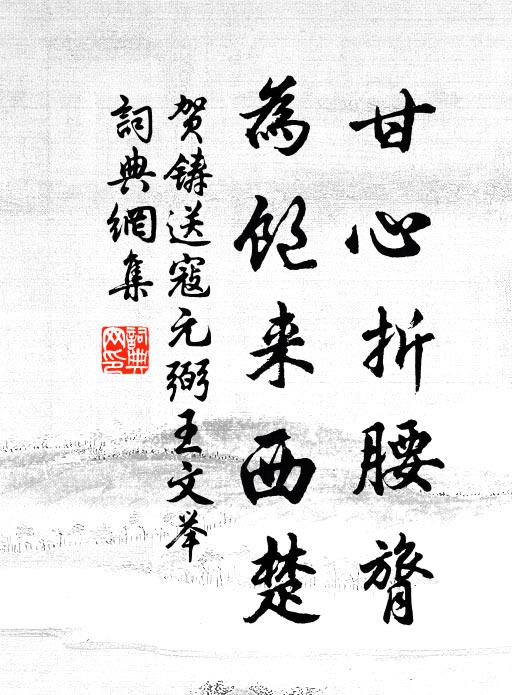 甘心折腰膂
為飢来西楚
贺鑄送寇元弼王文举
詞典網集
詞典网印